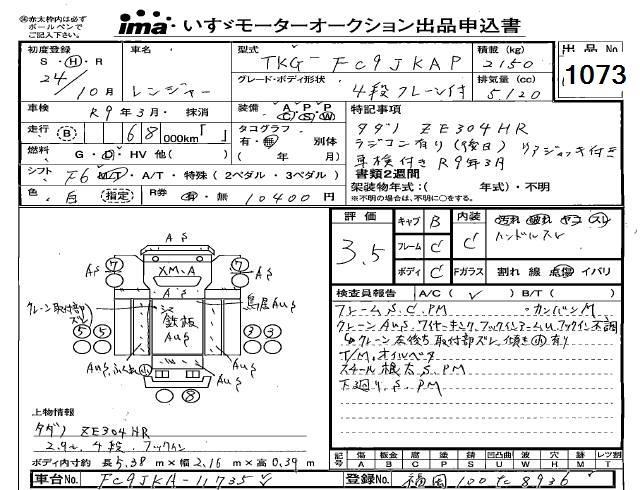 ㊟赤太枠内は必ず
ボールペンで
ご記入下さい。
ima いすゞモーターオークション出品申込書
初度登録 車名 型式 積載 (kg) 出品 No
S・H・R TKG- FC9JKAP 2150
24/10月 レンジャー グレード・ボディ形状 排気量 (cc) 1073
4段クレーン付 5,120
車検 R9年3月・ 抹消 装備 A P P C S W 特記事項
走行 B 68 000km「 」 タコグラフ タダノ ZE304HR
有・無 別体 ラジコン有り(後日) リアジャッキ付き
燃料 G・D・HV 他( ) ( 年 月) 車検付き R9年3月
シフト F6 MT・A/T・特殊 (2ペダル・3ペダル) 書類2週間
色 白 指定 R券 有・無 10400円 架装物年式:( 年式)・不明
※不明の場合は、不明に○をする。
評価 キャブ B 内装 汚れ 破れ ヤコ スレ
3.5 フレーム C C ハンドルスレ
ボディ C Fガラス 割れ 線 点傷 イバリ
検査員報告 A/C( ✓ ) B/T( )
フレーム S.C.PM ・カンバンM
クレーン AuS. ワイヤーキンク. フックインアームu. フックイン不調
↳クレーン左後ち取付部ズレ, 傾き小有り
T/M, オイルベタ
スチール根太 S. PM
下廻り. S. PM
AS
7 7
AS XM.A AS
AS
クレーン取付部
ズレ
鉄板
AuS
鳥居AuS
5 5 3 3
AuS. ふくみ小 AuS
AuS
8
上物情報
タダノ ZE304HR
2.9t. 4段. フックイン
ボディ内寸約 長 5.38 m × 幅 2.16 m × 高 0.39 m
記号 傷 A 板金 B 腐 C 塗 P 錆 S 凹凸曲 U 波 W 穴 H 跡 M レツ割 T
車台No. FC9JKA-11735 ✓ 登録No. 福岡 100 た 8936 ✓